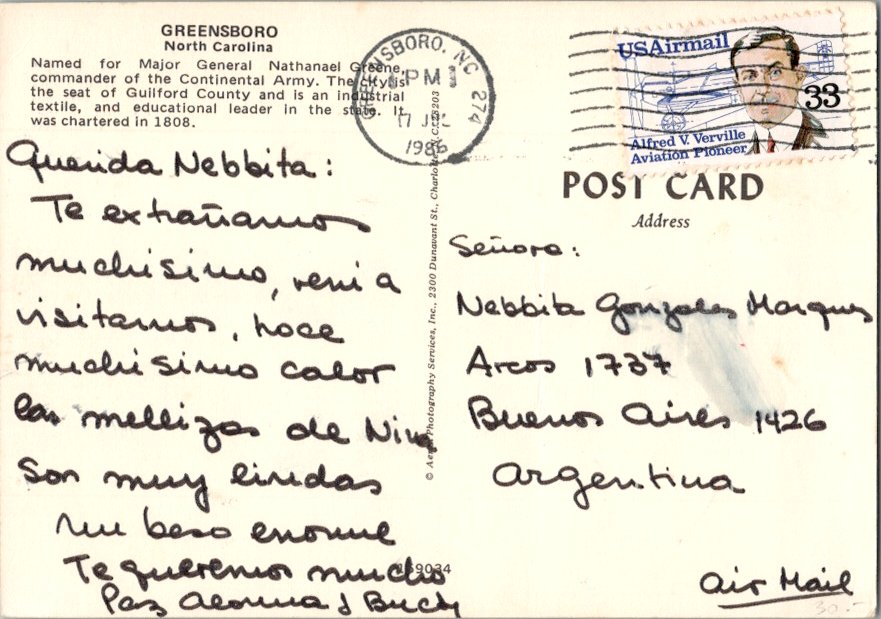 GREENSBORO
North Carolina
Named for Major General Nathanael Greene,
commander of the Continental Army. The city is
the seat of Guilford County and is an industrial
textile, and educational leader in the state. It
was chartered in 1808.
GREENSBORO, NC 274
PM
17 JUL
1986
USAirmail
33
Alfred V. Verville
Aviation Pioneer
Querida Nebbita:
Te extrañamos
muchisimo, veni a
visitarnos, hace
muchisimo calor
las mellizas de Nina
son muy lindas
un beso enorme
Te queremos mucho
Paz
© Aerial Photography Services, Inc., 2300 Dunavant St., Charlotte, N.C. 28203
159034
POST CARD
Address
Señora:
Nebbita Gonzales Marques
Arcos 1737
Buenos Aires 1426
Argentina
Air Mail
30.-